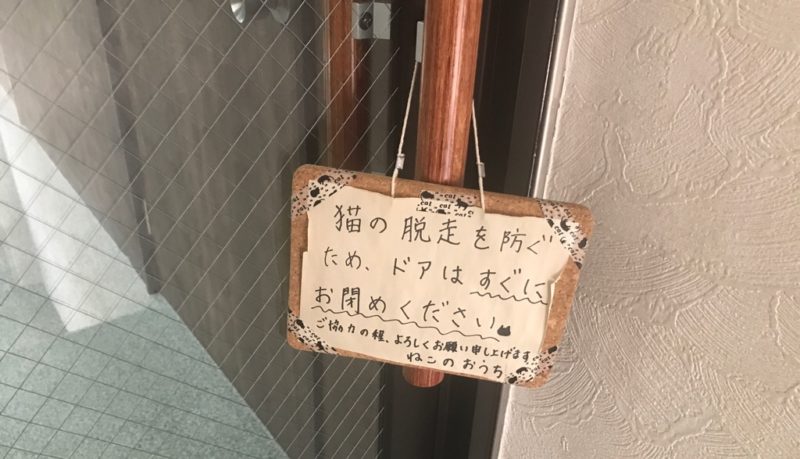 猫の脱走を防ぐ
ため、ドアはすぐに
お閉めください
ご協力の程、よろしくお願い申し上げます
ねこのおうち